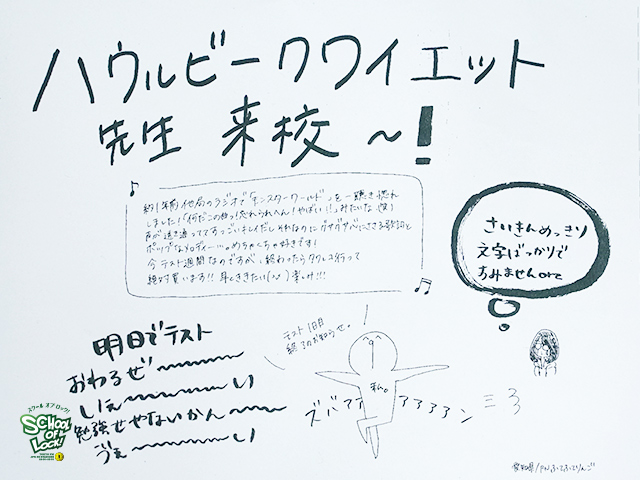 ハウルビークワイエット
先生 来校 〜!
約1年前他局のラジオで「モンスターワールド」を一聴き惚れ
しました!「何だこの曲っ!忘れられへん!やばい!!」みたいな(笑)
声が透き通っててすっごいキレイだし それなのに グサグサ心にささる歌詞と
ポップなメロディー…。めちゃくちゃ好きです!
今テスト週間なのですが、終わったらタワレコ行って
絶対買います!! 早くききたい(^^) 楽しみ!!!
さいきんめっきり
文字ばっかりで
すみませんorz
明日でテスト
おわるぜ〜
いぇ〜い
勉強せやないかん〜
ゔぇ〜い
テスト1日目
終了のお知らせ。
私。
ズバァァァァァァン ミ3
スクール オブ ロック!
SCHOOL
OF
LOCK!
愛知県/PN.ふてふてりんご